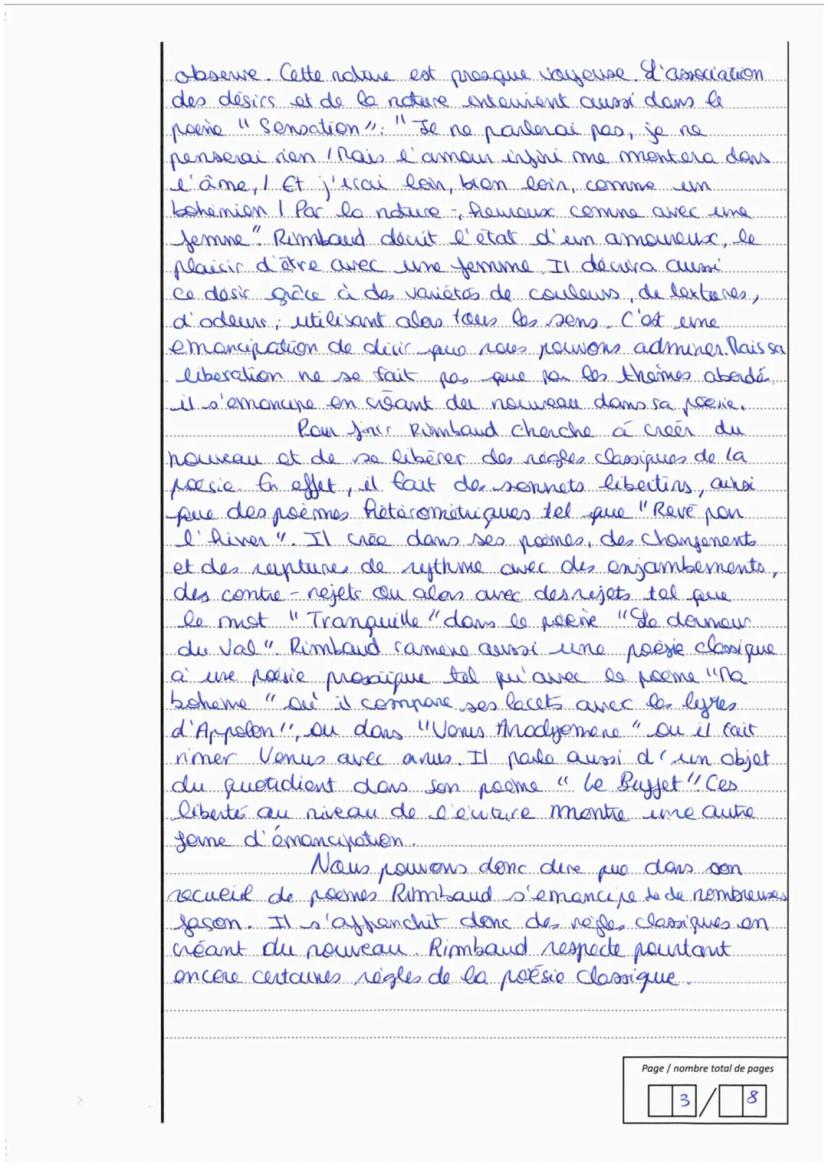 observe. Cette nature est presque voyeuse. L'association
des désirs et de la nature intervient aussi dans le
poème "Sensation": "Je ne parlerai pas, je ne
penserai rien / Mais l'amour infini me montera dans
l'âme, / Et j'irai loin, bien loin, comme un
bohémien / Par la nature -, heureux comme avec une
femme". Rimbaud décrit l'état d'un amoureux, le
plaisir d'être avec une femme. Il décrira aussi
ce désir grâce à des variétés de couleurs, de textures,
d'odeurs; utilisant alors tous les sens. C'est une
émancipation de désir que nous pouvons admirer. Mais sa
libération ne se fait pas que par les thèmes abordé,
il s'émancipe en créant du nouveau dans sa poésie.
Pour finir Rimbaud cherche à creér du
nouveau et de se libérer des règles classiques de la
poésie. En effet, il fait des sonnets libertins, ainsi
que des poèmes hétérométriques tel que "Revé pour
l'hiver". Il crée dans ses poèmes, des changements
et des ruptures de rythme avec des enjambements,
des contre-rejets ou alors avec des rejets tel que
le mot "Tranquille" dans le poème "Le dormeur
du Val". Rimbaud ramène aussi une poésie classique
à une poésie prosaïque tel qu'avec le poème "Ma
bohème" où il compare ses lacets avec les lyres
d'Appolon", ou dans "Venus Anadyomene" ou il fait
rimer Venus avec anus. Il parle aussi d'un objet
du quotidient dans son poème "Le Buffet". Ces
liberté au niveau de l'écriture montre une autre
forme d'émancipation.
Nous pouvons donc dire que dans son
recueil de poemes Rimbaud s'emancipe de nombreuses
fason. Il s'affranchit donc des règles classiques en
créant du nouveau. Rimbaud respecte pourtant
encore certaines règles de la poésie classique.
Page / nombre total de pages
3 / 8